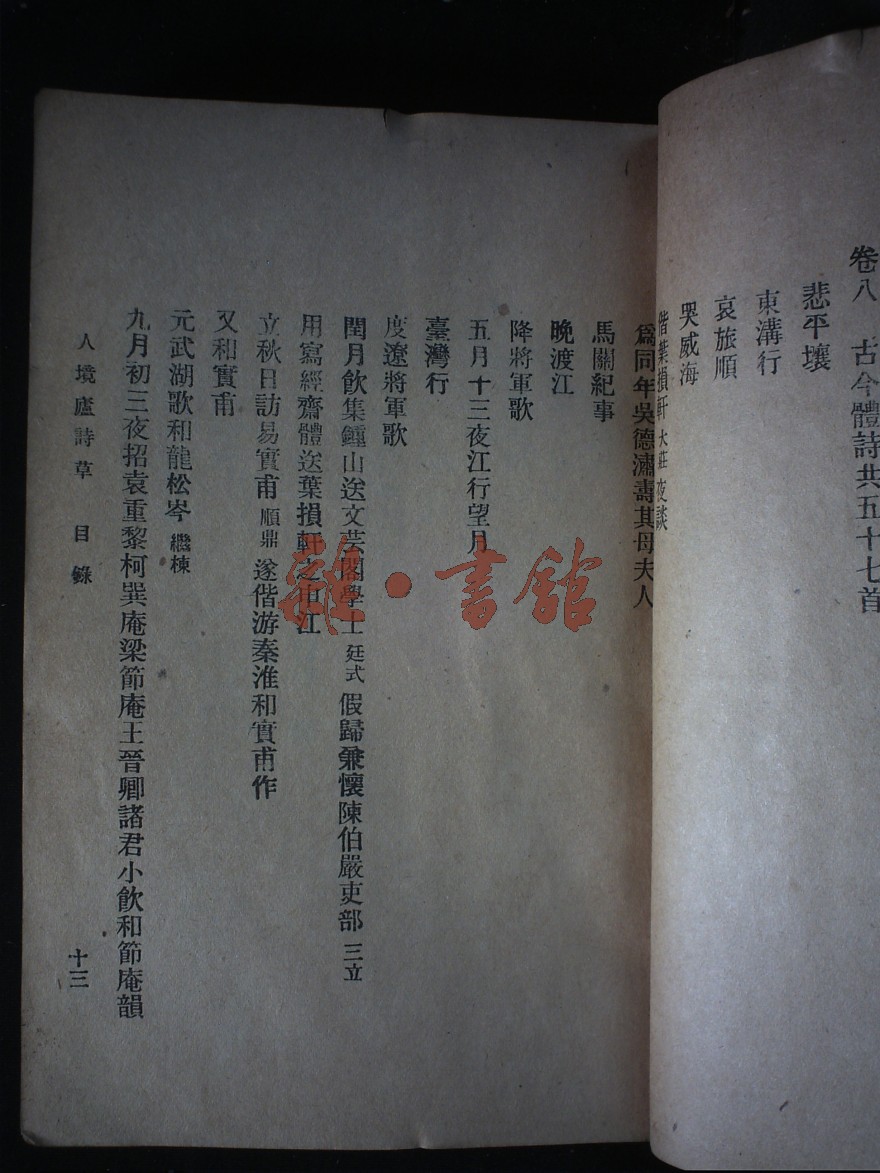 卷八 古今體詩共五十七首
悲平壤
東溝行
哀旅順
哭威海
偕葉損軒 大莊 夜談
爲同年吳德潚壽其母夫人
馬關紀事
晚渡江
降將軍歌
五月十三夜江行望月
臺灣行
度遼將軍歌
閏月飲集鍾山送文芸閣學士 廷式 假歸兼懷陳伯嚴吏部 三立
用寫經齋體送葉損軒之申江
立秋日訪易實甫 順鼎 遂偕游秦淮和實甫作
又和實甫
元武湖歌和龍松岑 繼棟
九月初三夜招袁重黎柯巽庵梁節庵王晉卿諸君小飲和節庵韻
人境廬詩草 目錄
十三
雜·書館